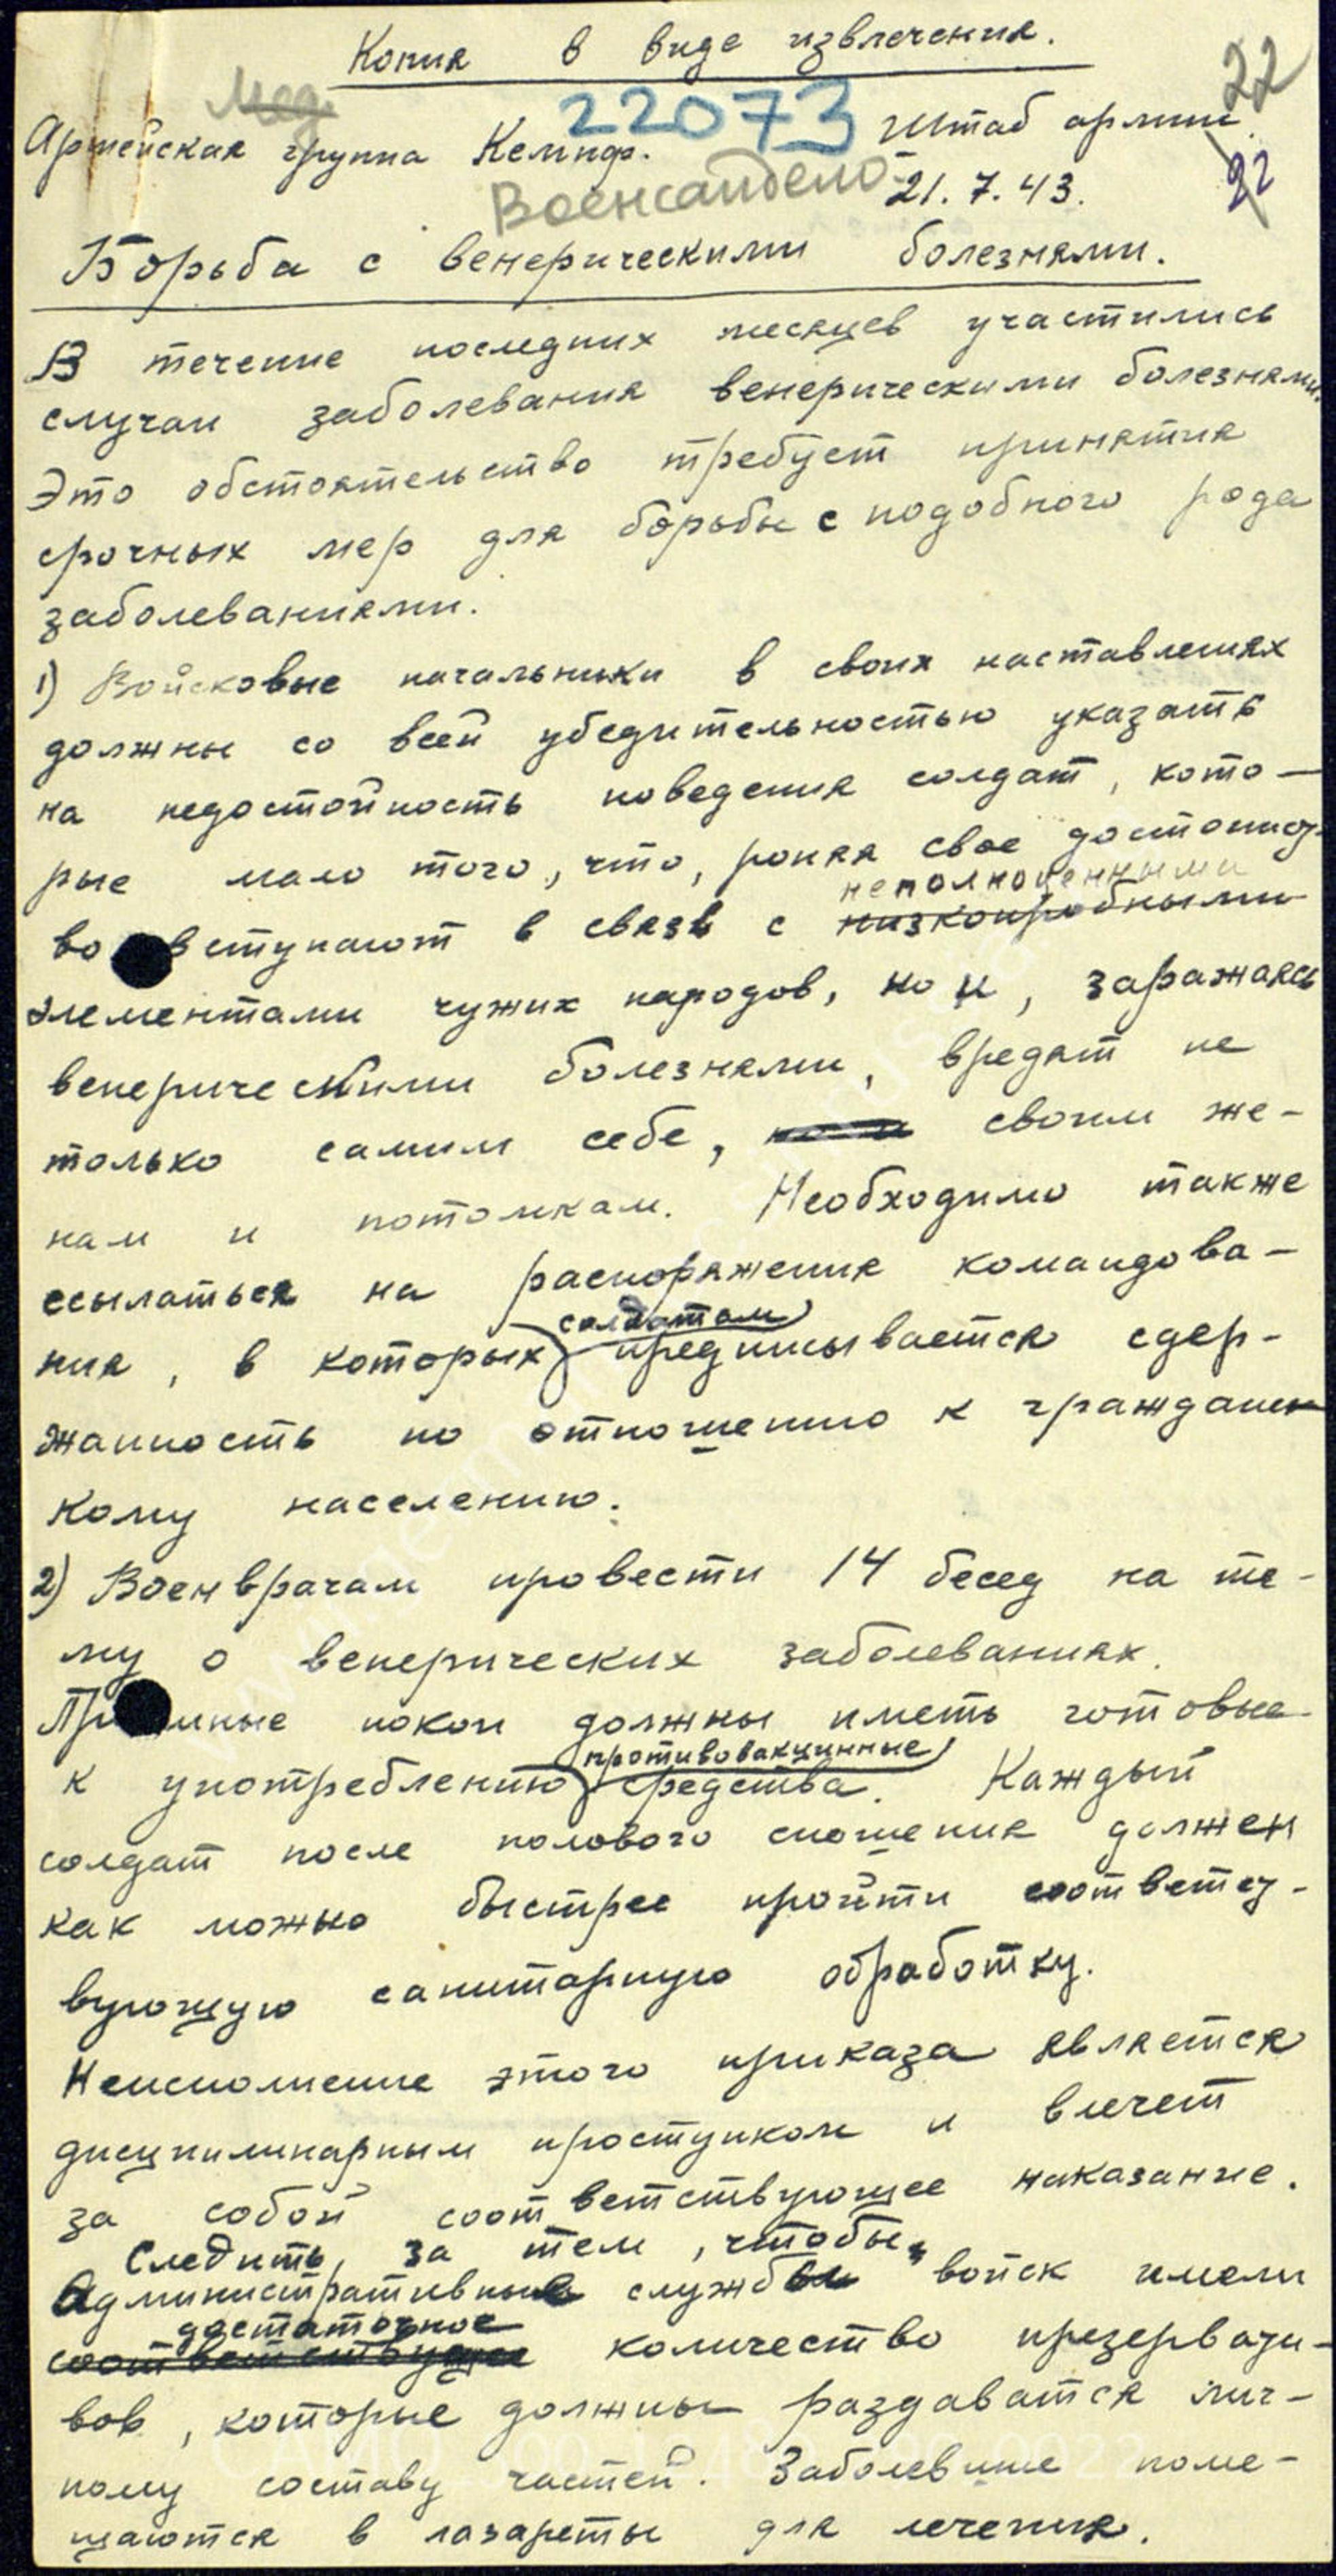 Копия в виде извлечения.
22
Мед
22073
Армейская группа Кемпф.
Штаб армии.
22
Военсанdело
21.7.43.
Борьба с венерическими болезнями.
В течение последних месяцев участились
случаи заболевания венерическими болезнями.
Это обстоятельство требует принятия
срочных мер для борьбы с подобного рода
заболеваниями.
1) Войсковые начальники в своих наставлениях
должны со всей убедительностью указать
на недостойность поведения солдат, кото-
рые мало того, что, роняя свое достоинст-
неполноценными
во вступают в связь с низкопробными
элементами чужих народов, но и, заражаясь
венерическими болезнями, вредят не
только самим себе, но и своим же-
нам и потомкам. Необходимо также
ссылаться на распоряжения командова-
солдатам
ния, в которых предписывается сдер-
жанность по отношению к гражданс
кому населению.
2) Военврачам провести 14 бесед на те-
му о венерических заболеваниях.
Приемные покои должны иметь готовые
противовакцинные
к употреблению средства. Каждый
солдат после полового сношения должен
как можно быстрее пройти соответст-
вующую санитарную обработку.
Неисполнение этого приказа является
дисциплинарным проступком и влечет
за собой соответствующее наказание.
Следить, за тем, чтобы
Административные службы войск имели
достаточное
соответствующее количество презервати-
вов, которые должны раздаватся лич-
ному составу частей. Заболевшие поме-
щаются в лазареты для лечения.